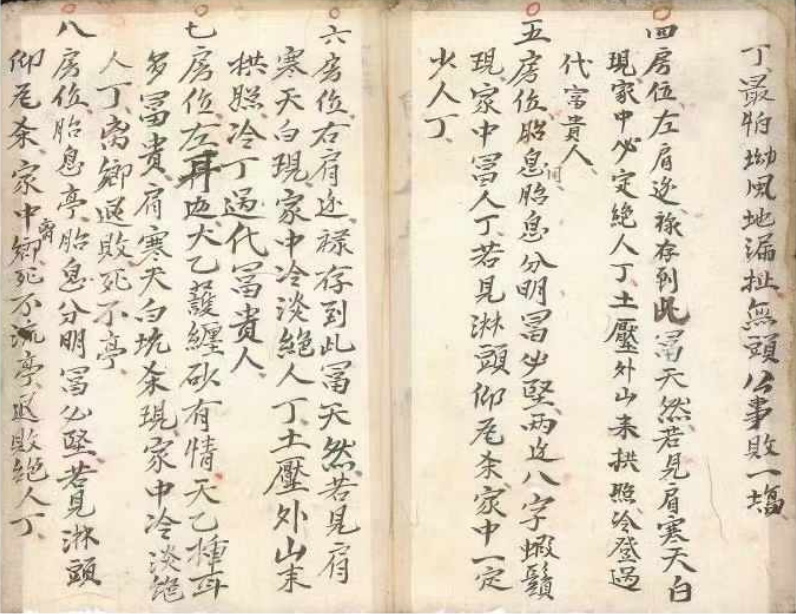 丁、最怕坳風地漏扯無頭公事敗一塲、
四房位、左肩边祿存到此冨天然若見肩寒天白
現家中必定絶人丁、土壓外山来拱照冷登過
代富貴人、
五房位胎息胎息分明冨必堅、兩边八字蝦鬚
現家中冨人丁、若見淋頭仰尾杀家中一定
少人丁、
六房位、右肩边、祿存到此冨天然若見肩
寒天白現、家中冷淡絶人丁、土壓外山来
拱照、冷丁過代冨貴人、
七房位左耳边天乙護纏砂有情天乙種耳
多冨貴、肩寒天白坑杀現家中冷淡絶
人丁、离鄉退敗死不亭、
八房位、胎息亭、胎息分明冨必堅、若見淋頭
仰尾杀、家中離鄉死不流亭退敗絶人丁、